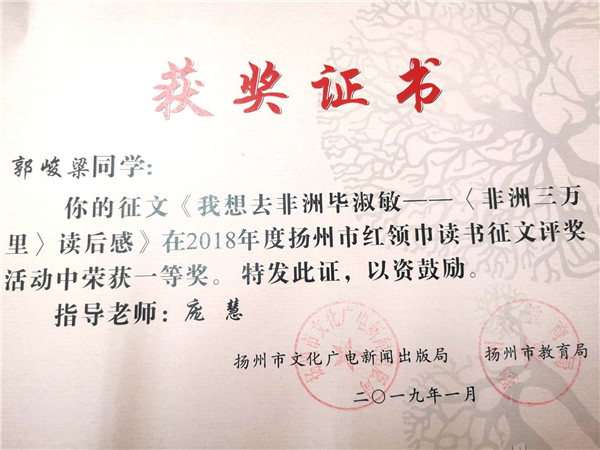 获奖证书
郭峻梁同学:
你的征文《我想去非洲毕淑敏——〈非洲三万
里〉读后感》在2018年度扬州市红领巾读书征文评奖
活动中荣获一等奖。特发此证，以资鼓励。
指导老师: 庞慧
扬州市文化广电新闻出版局 扬州市教育局
二〇一九年一月